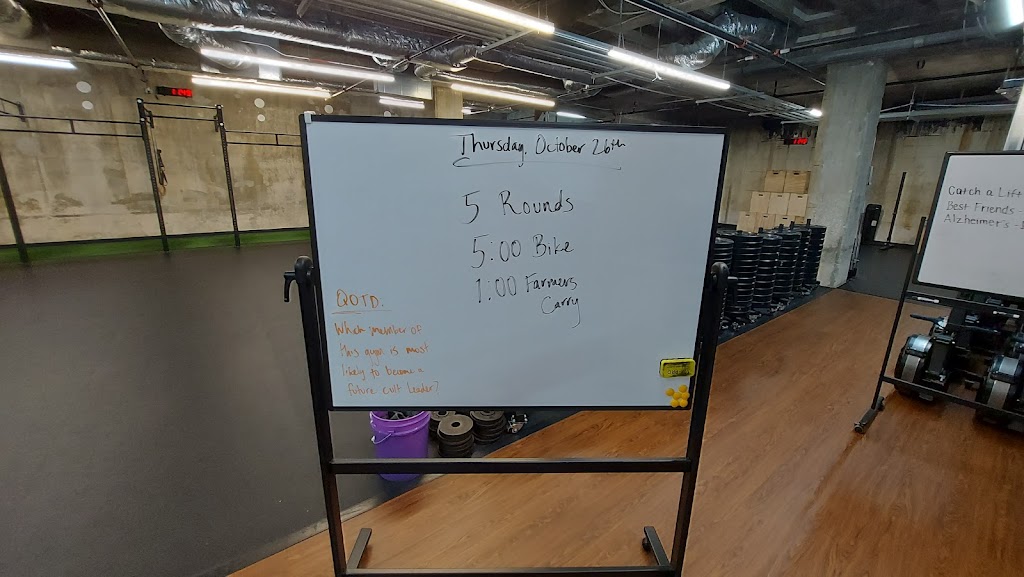 Thursday, October 26th
5 Rounds
5:00 Bike
1:00 Farmers
Carry
QOTD.
Which member of
this gym is most
likely to become a
future cult leader?
Catch a Lift
Best Friends -
Alzheimer's -